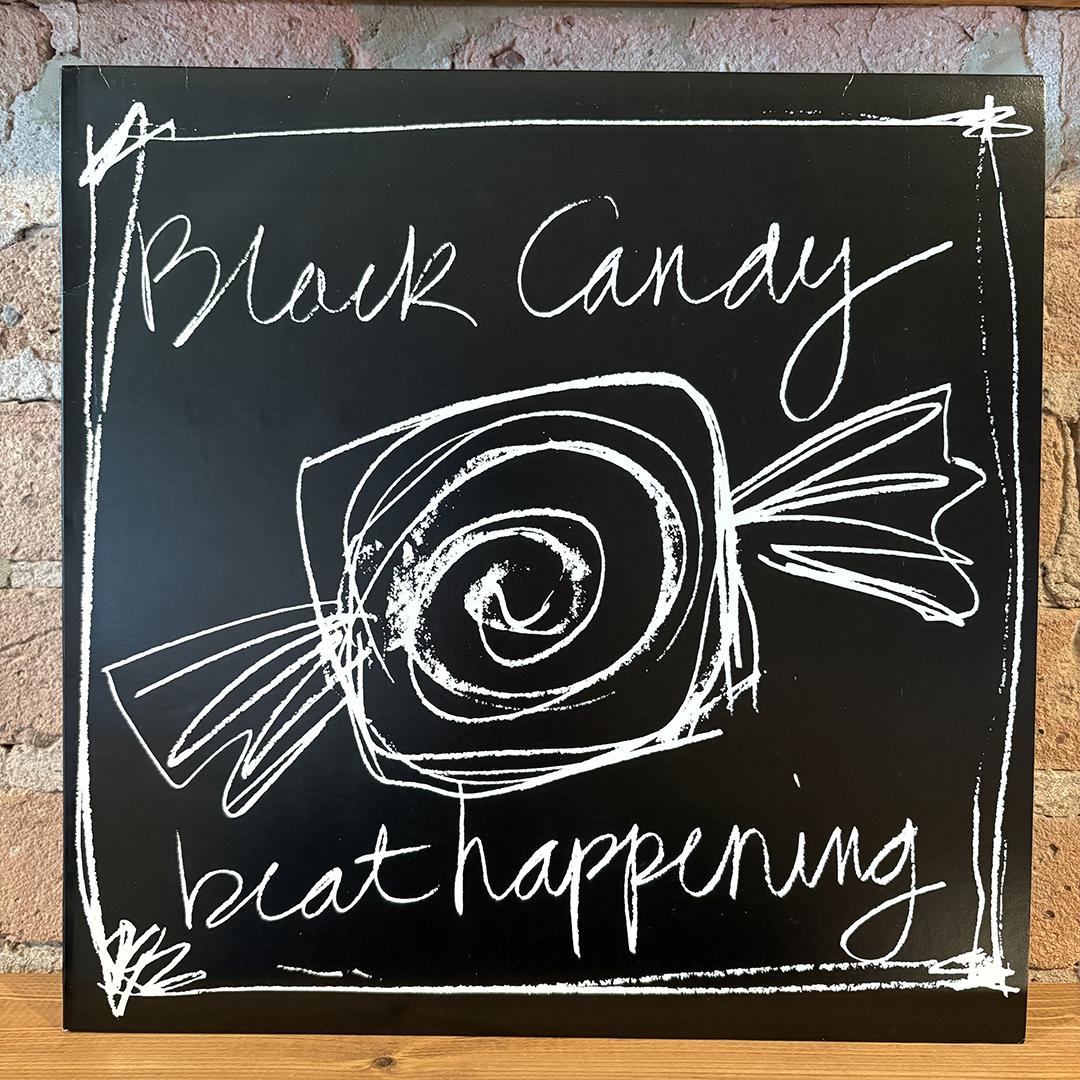 Black Candy
beat happening